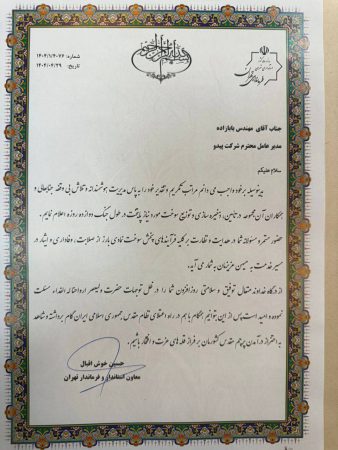 بسم الله الرحمن الرحیم
شماره: ۱۴۰۴/۱/۴۰۷۶
تاریخ: ۱۴۰۴/۰۴/۲۹
جناب آقای مهندس بابازاده
مدیر عامل محترم شرکت پیدو
سلام علیکم
بدینوسیله بر خود واجب می دانم مراتب تکریم و تقدیر خود را به پاس مدیریت هوشمندانه و تلاش بی وقفه جنابعالی و
همکاران آن مجموعه در تامین، ذخیره سازی و توزیع سوخت مورد نیاز پایتخت در طول جنگ دوازده روزه اعلام نمایم.
حضور مستمر و مسئولانه شما در هدایت و نظارت بر کلیه فرآیندهای پخش سوخت نمادی بارز از صلابت، وفاداری و ایثار در
مسیر خدمت به میهن عزیزمان به شمار می آید.
از درگاه خداوند متعال توفیق و سلامتی روزافزون شما را در ظل توجهات حضرت ولیعصر ارواحنا له الفداء مسئلت
نموده و امید است پس از این بتوانیم همگام با هم در راه اعتلای نظام مقدس جمهوری اسلامی ایران گام برداشته و شاهد
به اهتزاز درآمدن پرچم مقدس کشورمان بر فراز قله های عزت و افتخار باشیم.
حسین خوش اقبال
معاون استاندار و فرماندار تهران